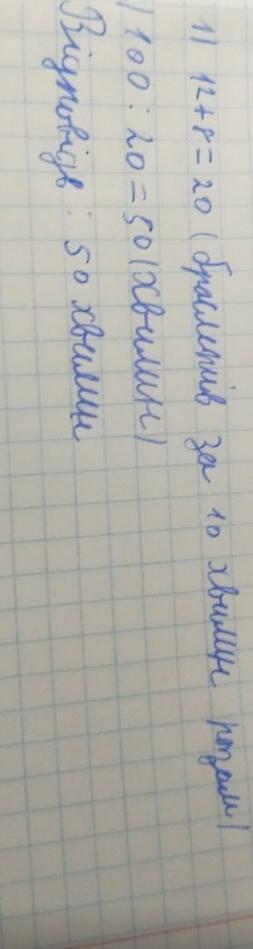 1) 12+8=20 (браслетів за 10 хвилин разом)
) 100:20=50 (хвилин)
Відповідь: 50 хвилин